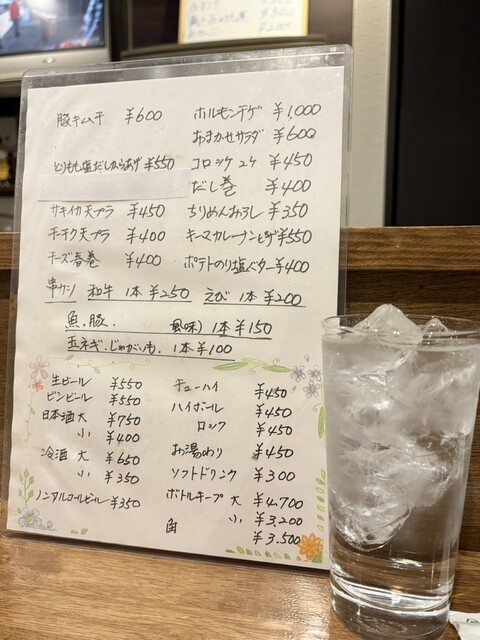 豚キムチ ¥600
ホルモン ¥1,000
おまかせサラダ ¥600
とりもも塩だしからあげ ¥550
コロッケ 2ケ ¥450
だし巻 ¥400
サキイカ天プラ ¥450
ちりめんおろし ¥350
チーチク天プラ ¥400
キーマカレーナンピザ ¥550
チーズ春巻 ¥400
ポテトのり塩バター ¥400
串カツ 和牛 1本 ¥250 えび 1本 ¥200
魚.豚. 1本 ¥150
玉ネギ.じゃがいも. 1本 ¥100
生ビール ¥550
ビンビール ¥550
日本酒 大 ¥750
小 ¥400
冷酒 大 ¥650
小 ¥350
ノンアルコールビール ¥350
チューハイ ¥450
ハイボール ¥450
ロック ¥450
お湯わり ¥450
ソフトドリンク ¥300
ボトルキープ 大 ¥4,700
小 ¥3,200
角 ¥3,500